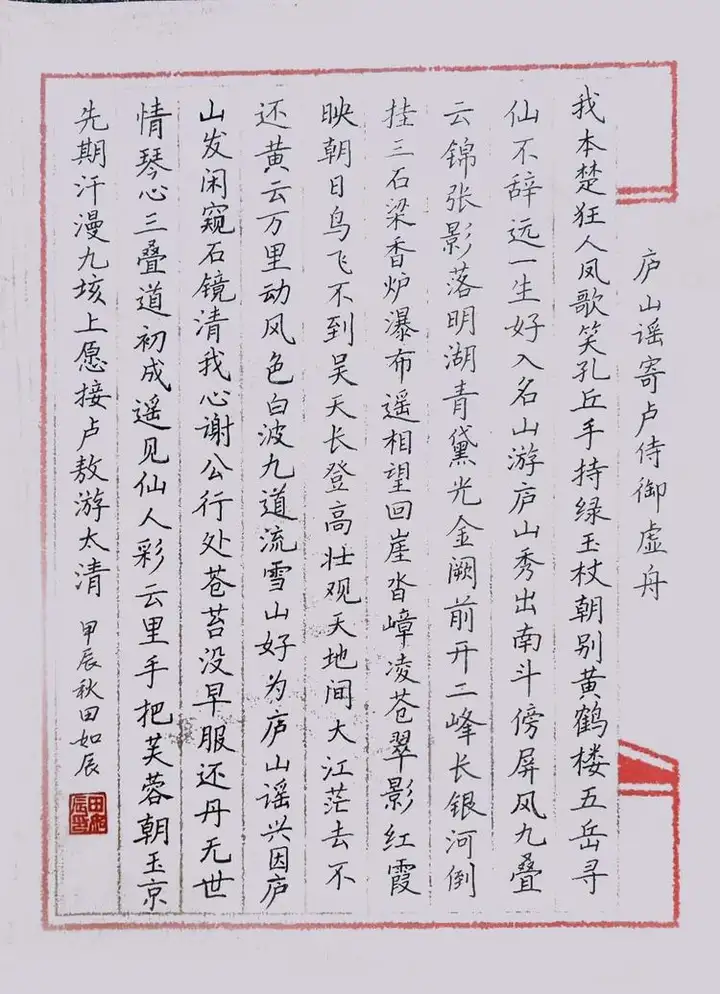 庐山谣寄卢侍御虚舟
我本楚狂人凤歌笑孔丘手持绿玉杖朝别黄鹤楼五岳寻
仙不辞远一生好入名山游庐山秀出南斗傍屏风九叠
云锦张影落明湖青黛光金阙前开二峰长银河倒
挂三石梁香炉瀑布遥相望回崖沓嶂凌苍翠影红霞
映朝日鸟飞不到吴天长登高壮观天地间大江茫去不
还黄云万里动风色白波九道流雪山好为庐山谣兴因庐
山发闲窥石镜清我心谢公行处苍苔没早服还丹无世
情琴心三叠道初成遥见仙人彩云里手把芙蓉朝玉京
先期汗漫九垓上愿接卢敖游太清
甲辰秋田如辰